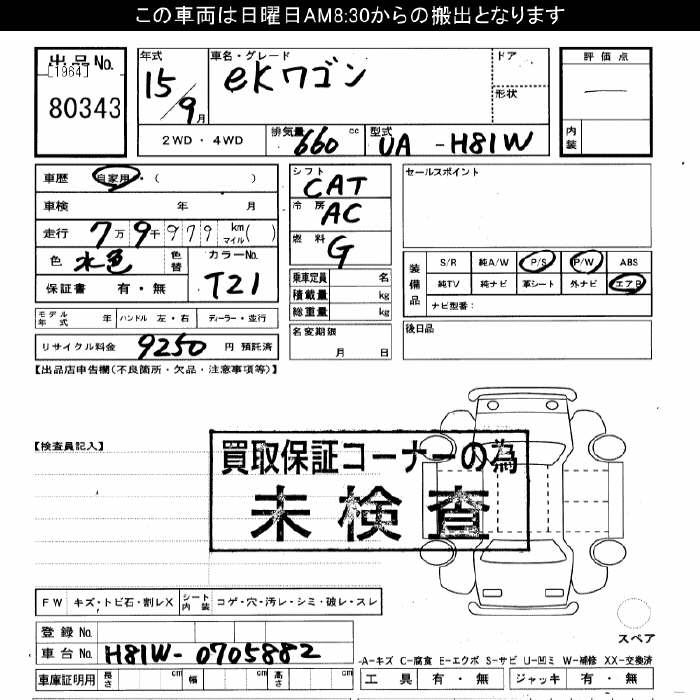 この車両は日曜日AM8:30からの搬出となります
出品No.
[1964]
80343
年式 15/9月
車名・グレード eKワゴン
ドア
形状
評価点
内装
2WD・4WD
排気量 660 cc
型式 UA-H81W
車歴 自家用・( )
車検 年 月
走行 7万9千979 km マイル( )
色 水色 色替 カラーNo. T21
保証書 有・無
モデル年式 年 ハンドル 左・右 ディーラー・並行
リサイクル料金 9250 円 預託済
シフト CAT
冷房 AC
燃料 G
乗車定員 名
積載量 kg
総重量 kg
名変期限
月 日
セールスポイント
装備品
S/R 純A/W P/S P/W ABS
純TV 純ナビ 革シート 外ナビ エアB
ナビ型番:
後日品
【出品店申告欄(不良箇所・欠品・注意事項等)】
【検査員記入】
買取保証コーナーの為
未検査
FW キズ・トビ石・割レX シート内装 コゲ・穴・汚レ・シミ・破レ・スレ
スペア
登録No.
車台No. H81W-0705882
車庫証明用 長さ cm 幅 cm 高さ cm
-A-キズ C-腐食 E-エクボ S-サビ U-凹ミ W-補修 XX-交換済
工具 有・無 ジャッキ 有・無